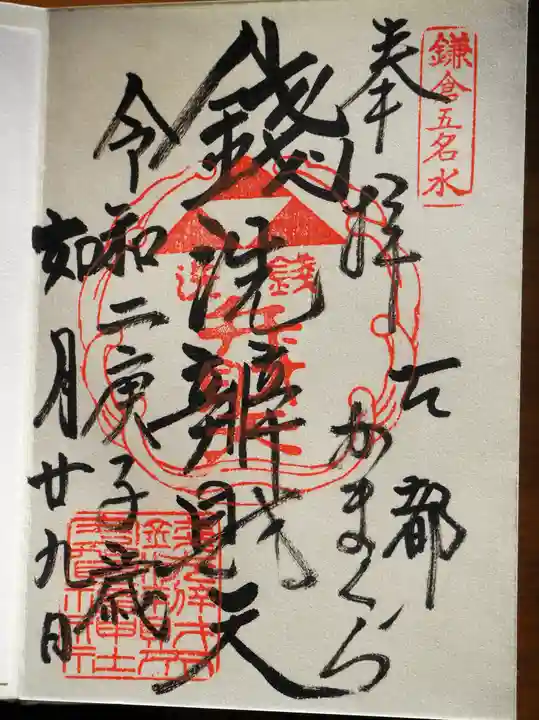 鎌倉五名水
奉拝
古都
かまくら
錢洗辨財天
令和二庚子歳
如月廿九日
錢洗